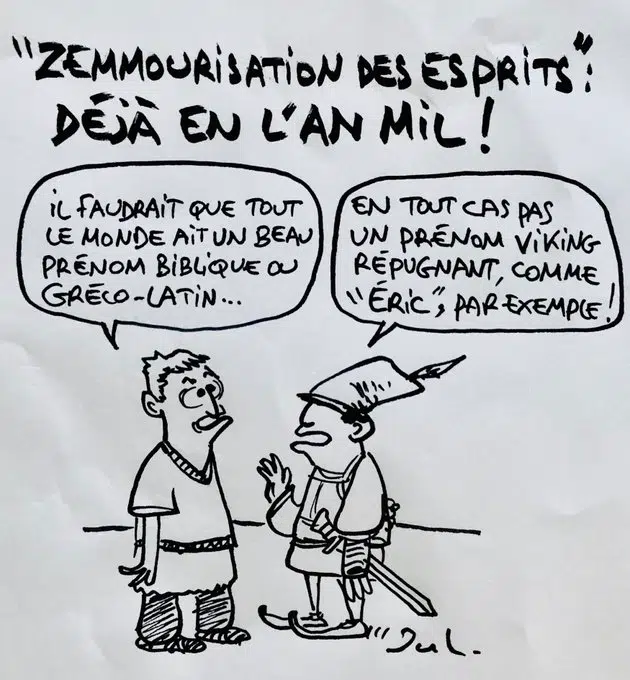 "ZEMMOURISATION DES ESPRITS":
DÉJÀ EN L'AN MIL!
IL FAUDRAIT QUE TOUT
LE MONDE AIT UN BEAU
PRÉNOM BIBLIQUE OU
GRÉCO-LATIN...
EN TOUT CAS PAS
UN PRÉNOM VIKING
RÉPUGNANT, COMME
"ÉRIC", PAR EXEMPLE!
JUL.